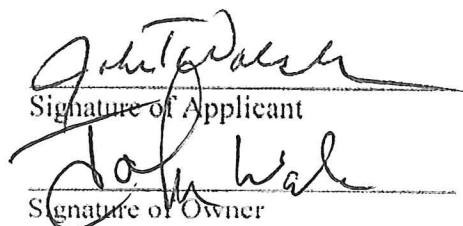 John T Walsh
Signature of Applicant
John Wals
Signature of Owner